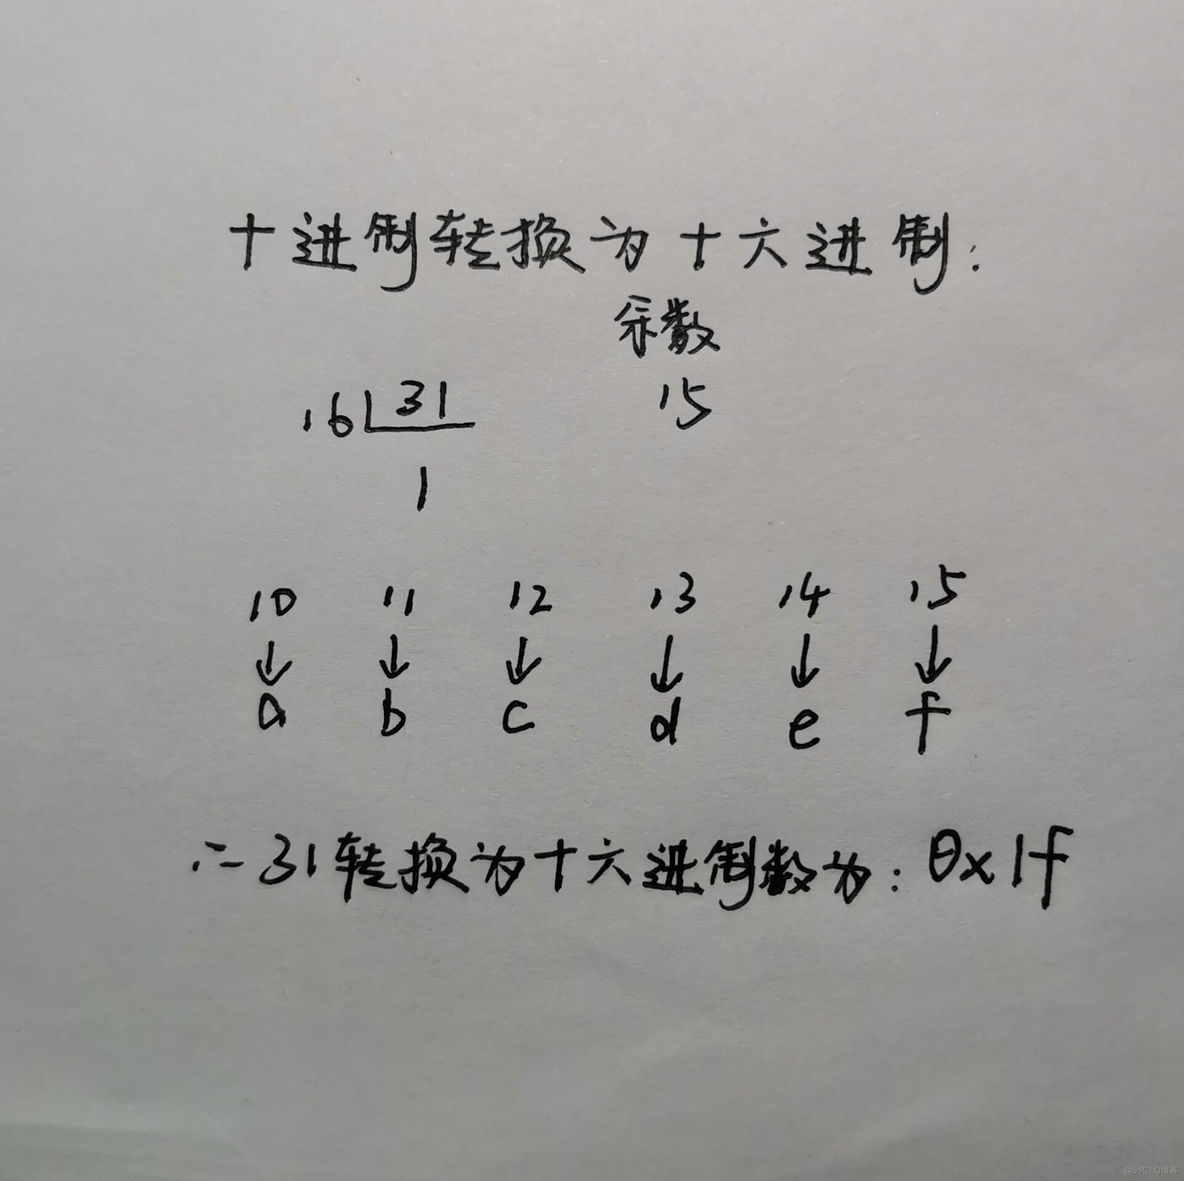 十进制转换为十六进制:
余数
16 31 15
1
10 11 12 13 14 15
↓ ↓ ↓ ↓ ↓ ↓
a b c d e f
∴ 31转换为十六进制数为: 0x1f
@51CTO博客